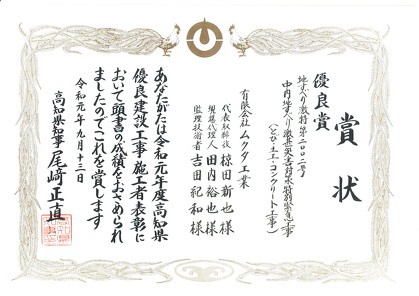 賞状
優良賞
地すべり激特第二〇〇二号
中内地すべり激甚災害対策特別緊急工事
(とび・土工・コンクリート工事)
有限会社ムクタ工業
代表取締役 椋田新也様
現場代理人 田内裕也様
監理技術者 吉田紀和様
あなたがたは令和元年度高知県
優良建設工事施工者表彰に
おいて頭書の成績をおさめられ
ましたのでこれを賞します
令和元年九月十三日
高知県知事 尾﨑正直